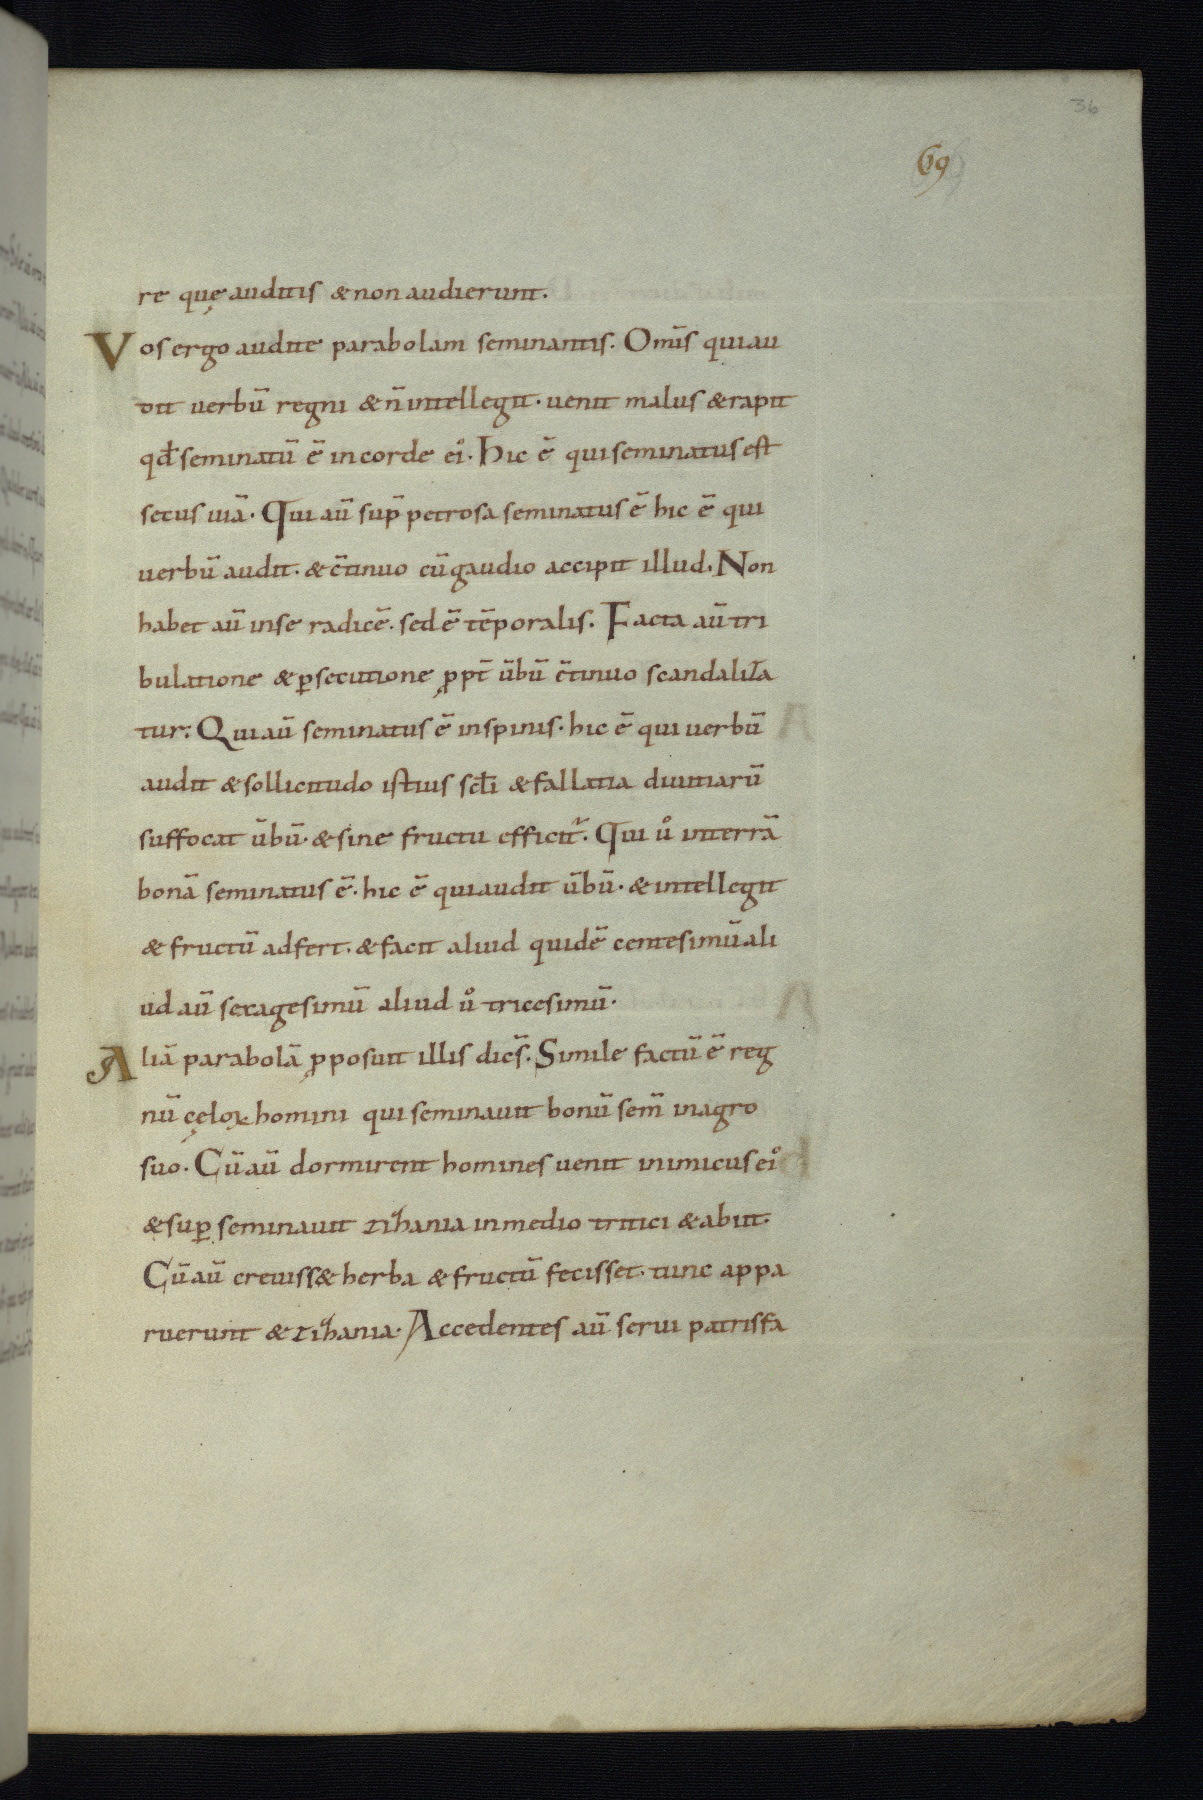 36
69
re quę auditis & non audierunt.
Vos ergo audite parabolam seminantis. Om̄s qui au
dit uerbū regni & n̄ intellegit. uenit malus & rapit
qđ seminatū ē in corde ei᾿. Hic ē qui seminatus est
secus uiā. Qui aū sup̄ petrosa seminatus ē hic ē qui
uerbū audit. & c̄tinuo cū gaudio accipit illud. Non
habet aū in se radicē. sed ē tēporalis. Facta aū tri
bulatione & ꝑsecutione ꝓpt̄ ūbū c̄tinuo scandaliza
tur. Qui aū seminatus ē in spinis. hic ē qui uerbū
audit & sollicitudo istius scłi & fallatia diuitiarū
suffocat ūbū. & sine fructu efficit᷑. Qui ů in terrā
bonā seminatus ē. hic ē qui audit ūbū. & intellegit
& fructū adfert. & facit aliud quidē centesimū ali
ud aū sexagesimū aliud ů tricesimū.
Aliā parabolā ꝓposuit illis dics̄. Simile factū ē reg
nū cęloꝝ homini qui seminauit bonū sem̄ in agro
suo. Cū aū dormirent homines uenit inimicus ei᾿
& suꝑ seminauit zizania in medio tritici & abiit.
Cū aū creuiss& herba & fructū fecisset. tunc appa
ruerunt & zizania. Accedentes aū serui patris fa